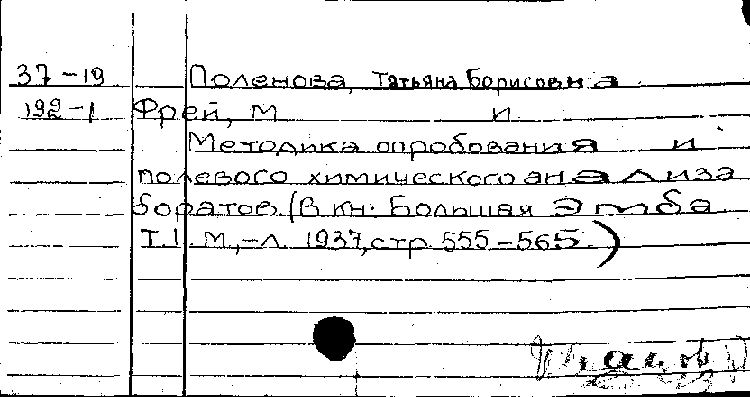 37-19 Поленова, Татьяна Борисовна
192-1 Фрей, М и
Методика опробования и
полевого химического анализа
боратов. (В кн: Большая Эмба
Т.I. М.,-Л. 1937, стр. 555-565.)